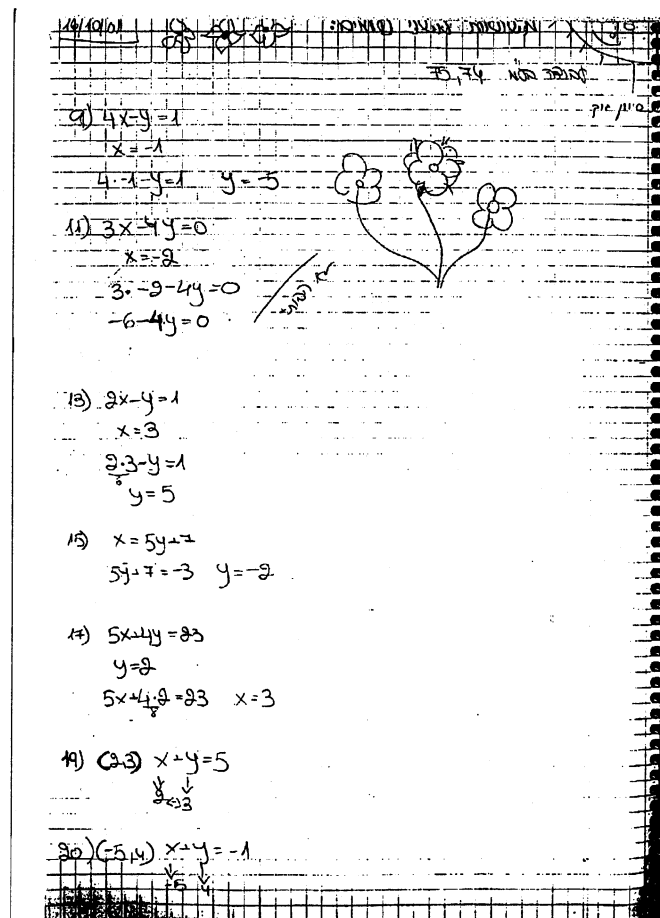 16/10/01
75,74
9) 4x-y=1
x=-1
4·-1-y=1 y=-5
11) 3x-4y=0
x=-2
3·-2-4y=0
-6-4y=0
13) 2x-y=1
x=3
2·3-y=1
6
y=5
15) x=5y+7
5y+7=-3 y=-2
17) 5x+4y=23
y=2
5x+4·2=23 x=3
8
19) (2,3) x+y=5
2 3
20) (-5,4) x+y=-1
-5 4